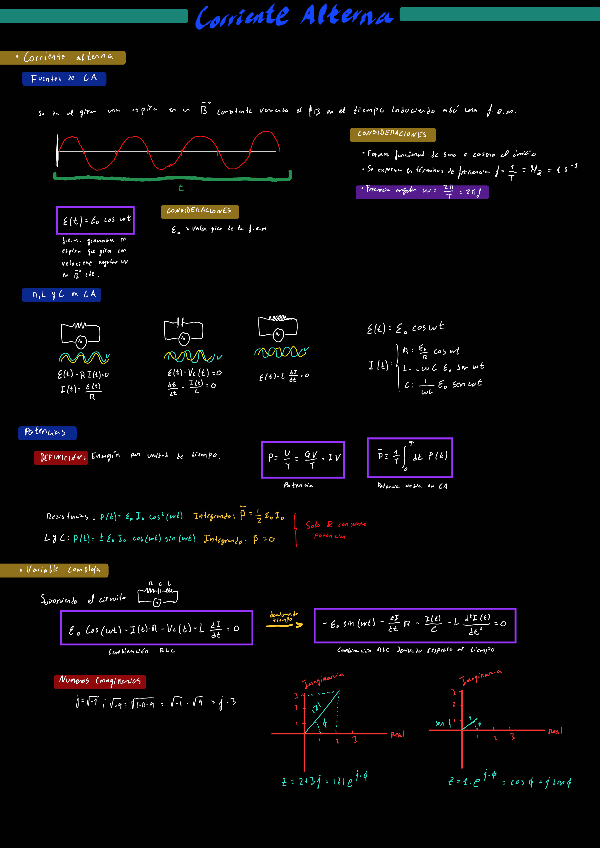 Corriente Alterna
• Corriente alterna
Fuentes de CA
Se en el giran una espira en un B constante variando el ϕB en el tiempo induciendo así una f.e.m.
CONSIDERACIONES
• Forma funcional de seno o coseno el
• Se expresa en términos de frecuencia f = 1/T = Hz = 1 s⁻¹
• Frecuencia angular ω = 2π/T = 2πf
t
ε(t) = ε₀ cos ωt
CONSIDERACIONES
ε₀ = valor pico de la f.e.m
f.e.m. generada en
espira que gira con
velocidad angular ω
en B cte.
R, L y C en CA
ε(t) - R I(t) = 0
I(t) = ε(t)/R
ε(t) - Vc(t) = 0
dε/dt - I(t)/C = 0
ε(t) - L dI/dt = 0
ε(t) = ε₀ cos ωt
I(t):
R: ε₀/R cos ωt
L: -ωC ε₀ sen ωt
C: 1/ωL ε₀ sen ωt
Potencias
DEFINICIÓN: Energía por unidad de tiempo.
P = U/T = QV/T = IV
Potencia
P̄ = 1/T ∫₀ᵀ dt P(t)
Potencia media en CA
Resistencias: P(t) = ε₀ I₀ cos²(ωt) Integrando: P̄ = 1/2 ε₀ I₀
L y C: P(t) = ± ε₀ I₀ cos(ωt) sin(ωt) Integrando: P̄ = 0
Solo R consume
potencia
• Variable compleja
Suponiendo el circuito
R C L
ε₀ cos(ωt) - I(t)·R - Vc(t) - L dI/dt = 0
Combinación RLC
Derivando
tiempo
-ε₀ sin(ωt) - dI/dt R - I(t)/C - L d²I(t)/dt² = 0
Combinación RLC derivada respecto al tiempo
Números Imaginarios
j = √-1 ; √-9 = √-1·9 = √-1 · √9 = j·3
Imaginaria
3
2
1
|z|
ϕ
1 2 3
Real
z = 2+3j = |z| e^(j·ϕ)
Imaginaria
3
2
sen ϕ
1 2 3
Real
z = 1·e^(j·ϕ) = cos ϕ + j sin ϕ